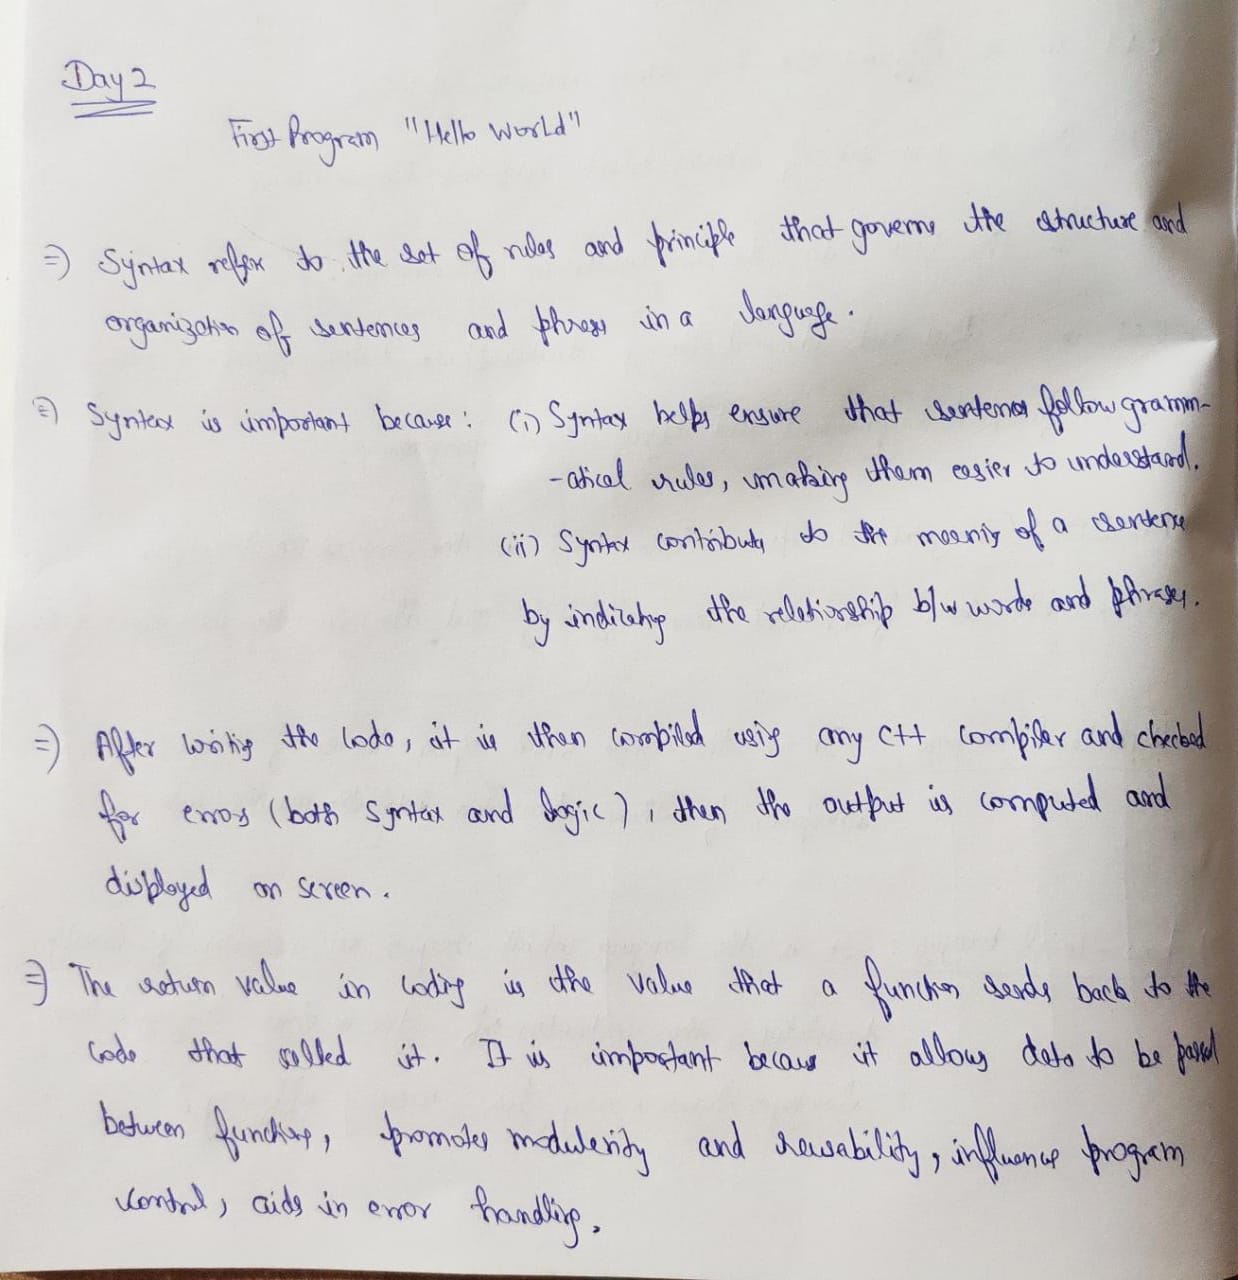 Day 2
First Program "Hello World"
=) Syntax refer to the set of rules and principle that governs the structure and
organization of sentences and phrases in a language.
=) Syntax is important because: (i) Syntax helps ensure that sentences follow gramm-
-atical rules, making them easier to understand.
(ii) Syntax contributes to the meaning of a sentence
by indicating the relationship b/w words and phrases.
=) After writing the code, it is then compiled using any C++ compiler and checked
for errors (both syntax and logic), then the output is computed and
displayed on screen.
=) The return value in coding is the value that a function sends back to the
code that called it. It is important because it allows data to be passed
between functions, promotes modularity and reusability, influence program
control, aids in error handling.